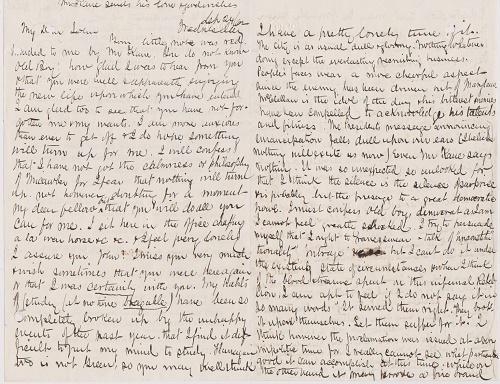 McClure sends his love & yesterdays
My Dear John
Wednesday
Your little note was rec'd
handed to me by McClure. You do not know
Old Boy how glad I was to hear from you
& that you were well & apparently enjoying
the new life upon which you have entered
I am glad too to see that you have not for-
gotten me & my wants. I am more anxious
than ever to get off & I do hope something
will turn up for me. I will confess
that I have not got the calmness or philosophy
of Micawber for I fear that nothing will turn
up. not however doubting for a moment
my dear fellow but that you will do all you
can for me. I sit here in the office
& feel very lonely
I assure you, John. I miss you very much
& wish sometimes that you were here again
or that I was certainly with you. My habits
of study (at no time ) have been so
completely broken up by the unhappy
events of the past year. that I find it dif-
ficult to put my mind to study. Flanagan
too is not here, so you may well think
I have a pretty lonely time of it.
The city is as usual dull & gloomy. Nothing whatever
doing except the everlasting recruiting business.
People's faces wear a more cheerful aspect
since the enemy has been driven out of Maryland
McClellan is the idol of the day & his bitterest enemies
have been compelled to acknowledge his talents
and fitness. The President message announcing
emancipation falls dull upon our ears (I believe
nothing will excite us now) even McClure says
nothing. It was so unexpected so unlooked for
that I think the silence is the silence
but the presage to a great democratic
howl. I must confess old boy democrat as I am
I cannot feel greatly shocked. I try to persuade
myself that I ought to & talk of unconstitu-
tionality outrage &c but I can't do it under
the existing state of circumstances & when I think
of the blood & shame spent in this infernal Rebel-
lion. I am apt to feel if I do not say it in
so many words "It served them right. They brought
it upon themselves. Let them suffer for it." I
think however the proclamation was issued at a very
time for I really cannot see what particular
good it can accomplish at this time. while on
the other hand it may prove a fire brand